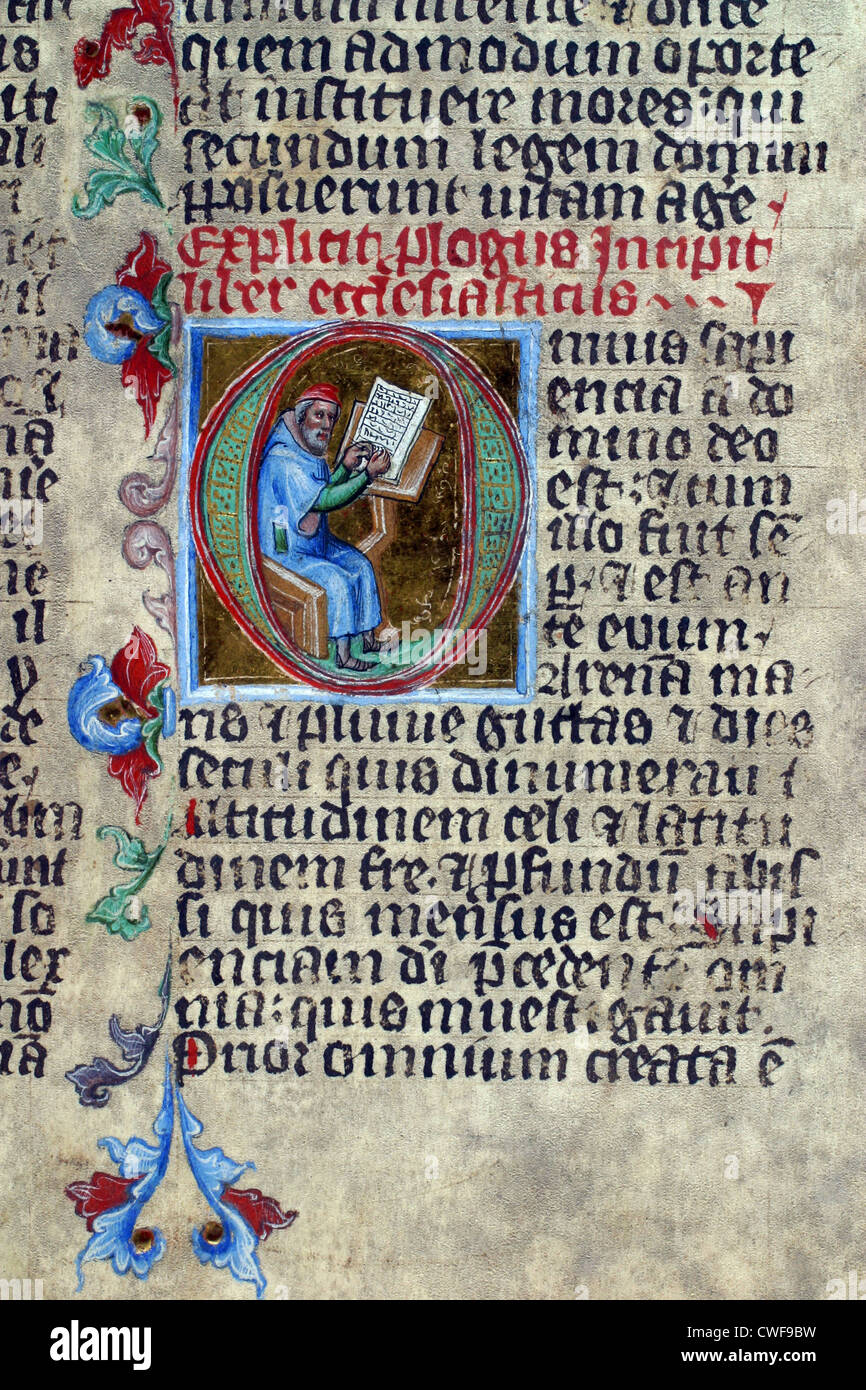 quem admodum oporte
at instituere mores: qui
secundum legem domini
pposuerunt uitam age
Explicit plogus Incipit
liber ecclesiasticus
Omnis sapi
encia a do
mino deo
est: et cum
illo fuit sē
p, et est an
te euum.
Arenā ma
ris et pluuie guttas et dies
seculi quis dinumerauit
Altitudinem celi et latitu
dinem tre, et pfundū abis
si quis mensus est Sapi
enciam dī pcedentē om
nia: quis inuestigauit.
Prior omnium creata ē
alamy
Image ID: CWF9BW
www.alamy.com